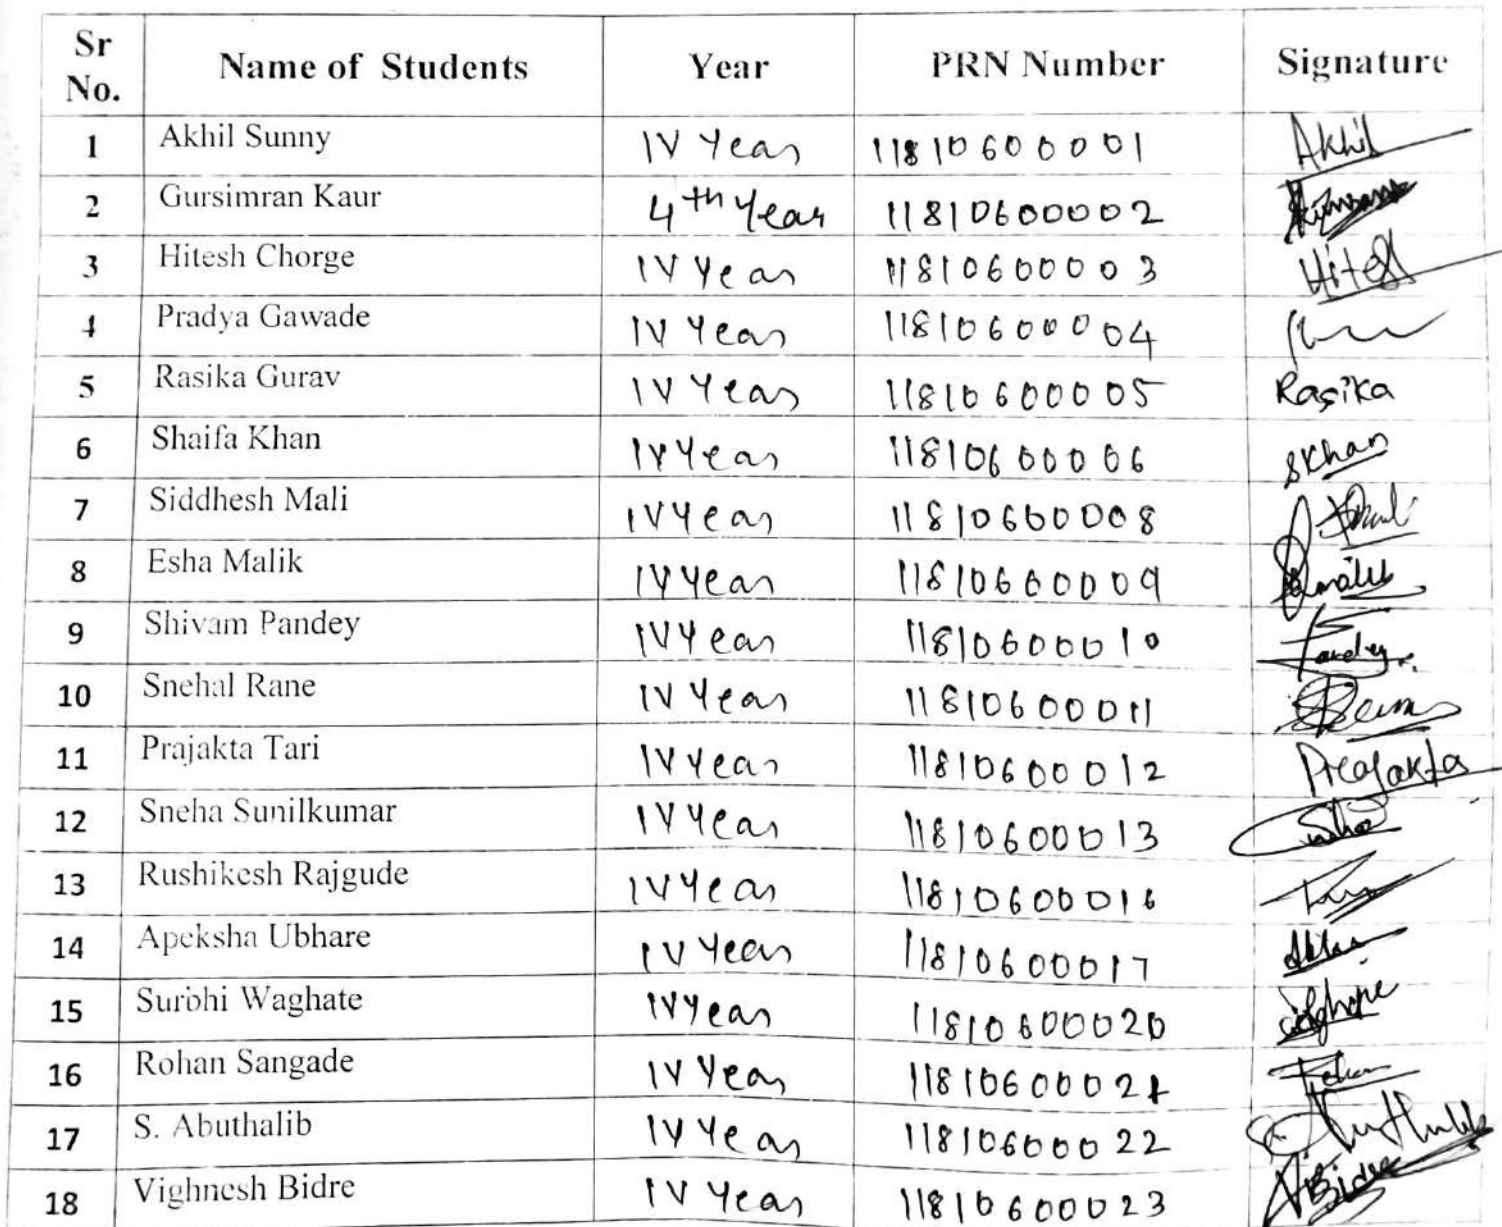 Sr No. Name of Students Year PRN Number Signature
1 Akhil Sunny IV Year 11810600001 Akhil
2 Gursimran Kaur 4th Year 11810600002
3 Hitesh Chorge IV Year 11810600003 Hitesh
4 Pradya Gawade IV Year 11810600004
5 Rasika Gurav IV Year 11810600005 Rasika
6 Shaifa Khan IV Year 11810600006 SKhan
7 Siddhesh Mali IV Year 11810600008
8 Esha Malik IV Year 11810600009
9 Shivam Pandey IV Year 11810600010 Pandey
10 Snehal Rane IV Year 11810600011
11 Prajakta Tari IV Year 11810600012 Prajakta
12 Sneha Sunilkumar IV Year 11810600013
13 Rushikesh Rajgude IV Year 11810600016
14 Apeksha Ubhare IV Year 11810600017
15 Surbhi Waghate IV Year 11810600020
16 Rohan Sangade IV Year 11810600021
17 S. Abuthalib IV Year 11810600022
18 Vighnesh Bidre IV Year 11810600023 VBidre